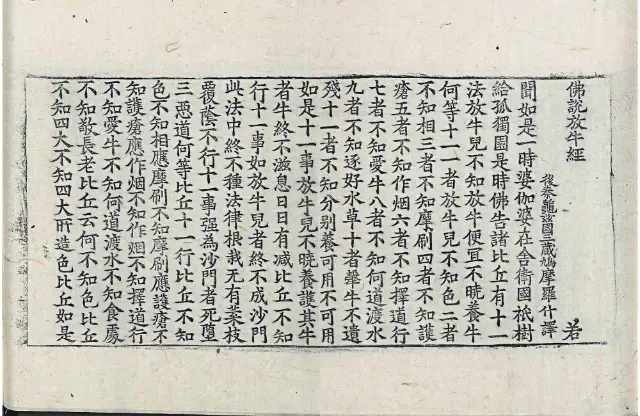 佛說放牛經
後秦龜茲國三藏鳩摩羅什譯
若
聞如是一時婆伽婆在舍衛國祇樹
給孤獨園是時佛告諸比丘有十一
法放牛兒不知放牛便宜不曉養牛
何等十一一者放牛兒不知色二者
不知相三者不知摩刷四者不知護
瘡五者不知作烟六者不知擇道行
七者不知愛牛八者不知何道渡水
九者不知逐好水草十者𤚲牛不遺
殘十一者不知分別養可用不可用
如是十一事放牛兒不曉養護其牛
者牛終不滋息日日有減比丘不知
行十一事如放牛兒者終不成沙門
此法中終不種法律根栽无有葉枝
覆蔭不行十一事强為沙門者死墮
三惡道何等比丘十一行比丘不知
色不知相應摩刷不知摩刷應護瘡不
知護瘡應作烟不知作烟不知擇道行
不知愛牛不知何道渡水不知食處
不知敬長老比丘云何不知色比丘
不知四大不知四大所造色比丘如是